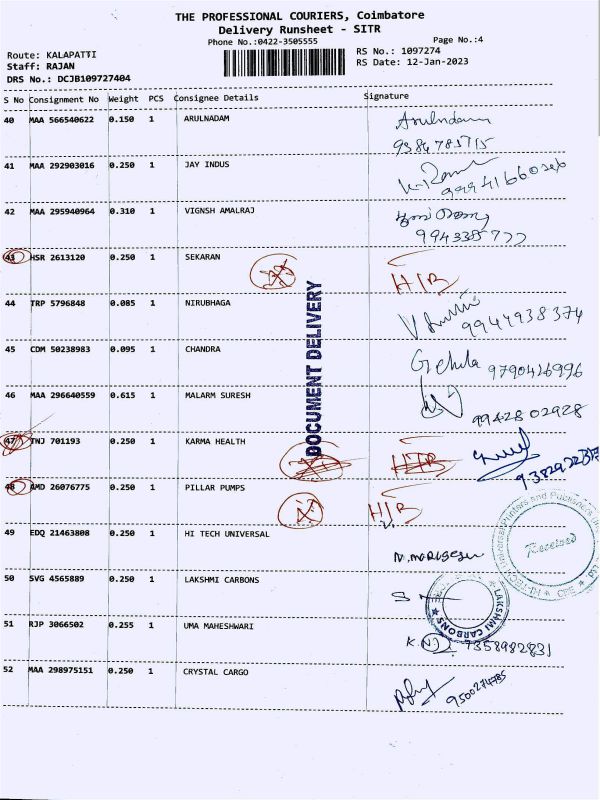 THE PROFESSIONAL COURIERS, Coimbatore
Delivery Runsheet - SITR
Phone No.:0422-3505555
Page No.:4
Route: KALAPATTI
RS No.: 1097274
Staff: RAJAN
RS Date: 12-Jan-2023
DRS No.: DCJB109727404
S No Consignment No Weight PCS Consignee Details Signature
40 MAA 566540622 0.150 1 ARULNADAM Arulndam
9384783715
41 MAA 292903016 0.250 1 JAY INDUS
42 MAA 295940964 0.310 1 VIGNSH AMALRAJ
43 HSR 2613120 0.250 1 SEKARAN H/B
44 TRP 5796848 0.085 1 NIRUBHAGA
9944938374
45 CDM 50238983 0.095 1 CHANDRA
9790416996
46 MAA 296640559 0.615 1 MALARM SURESH
9942802928
47 TNJ 701193 0.250 1 KARMA HEALTH
48 AMD 26076775 0.250 1 PILLAR PUMPS H/B
DOCUMENT DELIVERY
49 EDQ 21463808 0.250 1 HI TECH UNIVERSAL
Received
CBE
50 SVG 4565889 0.250 1 LAKSHMI CARBONS
LAKSHMI CARBONS
51 RJP 3066502 0.255 1 UMA MAHESHWARI
7358982831
52 MAA 298975151 0.250 1 CRYSTAL CARGO
9500274785